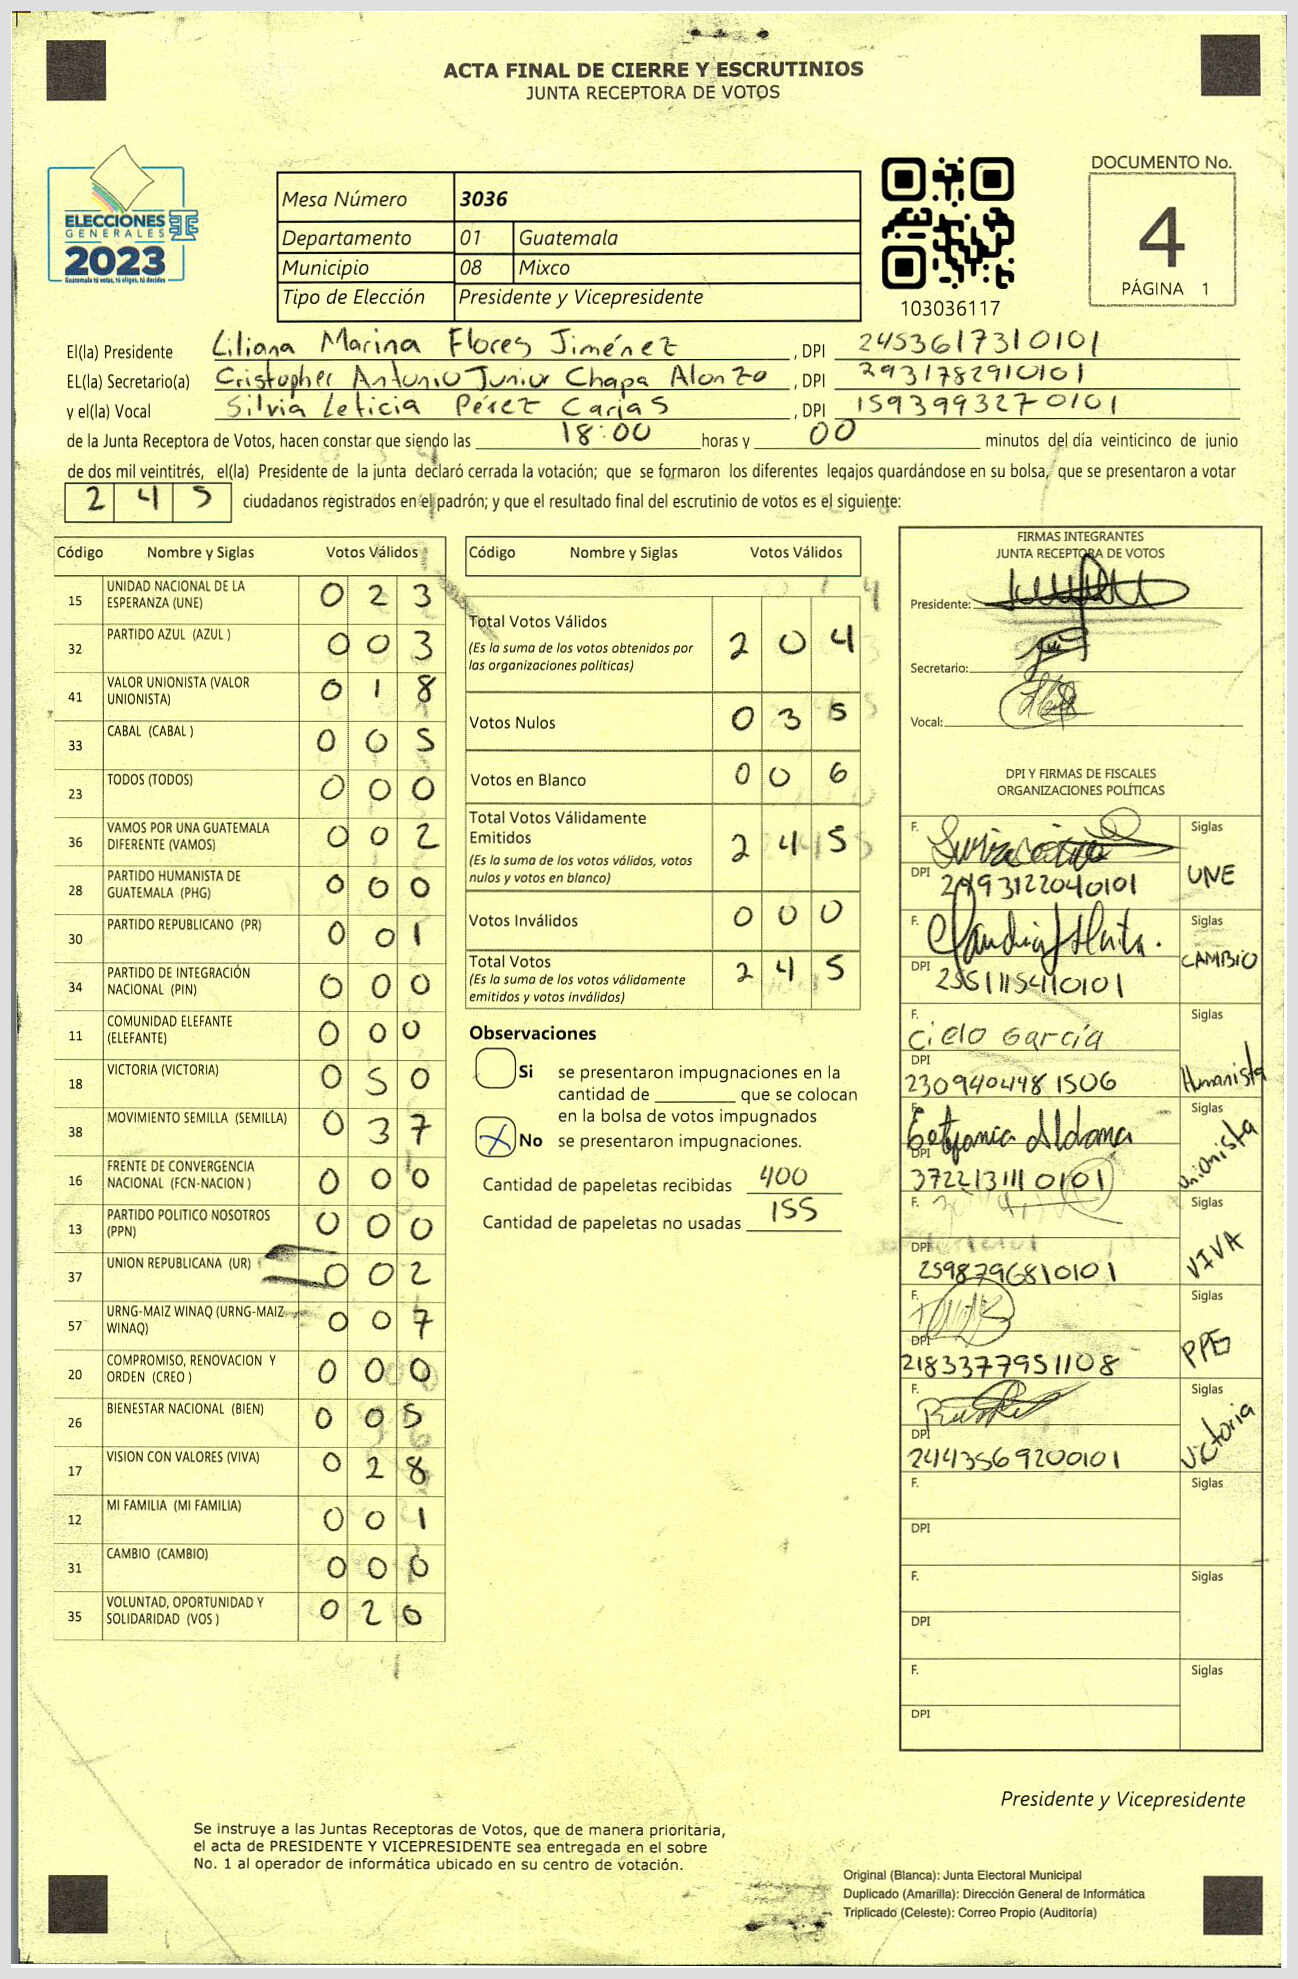 ACTA FINAL DE CIERRE Y ESCRUTINIOS
JUNTA RECEPTORA DE VOTOS
ELECCIONES
GENERALES
2023
Guatemala tú votas, tú eliges, tú decides
Mesa Número 3036
Departamento 01 Guatemala
Municipio 08 Mixco
Tipo de Elección Presidente y Vicepresidente
103036117
DOCUMENTO No.
4
PÁGINA 1
El(la) Presidente Liliana Marina Flores Jiménez , DPI 2453617310101
EL(la) Secretario(a) Cristopher Antonio Junior Chapa Alonzo , DPI 2931782910101
y el(la) Vocal Silvia Leticia Pérez Carías , DPI 1593993270101
de la Junta Receptora de Votos, hacen constar que siendo las 18:00 horas y 00 minutos del día veinticinco de junio
de dos mil veintitrés, el(la) Presidente de la junta declaró cerrada la votación; que se formaron los diferentes legajos guardándose en su bolsa, que se presentaron a votar
2 4 5 ciudadanos registrados en el padrón; y que el resultado final del escrutinio de votos es el siguiente:
Código Nombre y Siglas Votos Válidos
15 UNIDAD NACIONAL DE LA ESPERANZA (UNE) 0 2 3
32 PARTIDO AZUL (AZUL ) 0 0 3
41 VALOR UNIONISTA (VALOR UNIONISTA) 0 1 8
33 CABAL (CABAL ) 0 0 5
23 TODOS (TODOS) 0 0 0
36 VAMOS POR UNA GUATEMALA DIFERENTE (VAMOS) 0 0 2
28 PARTIDO HUMANISTA DE GUATEMALA (PHG) 0 0 0
30 PARTIDO REPUBLICANO (PR) 0 0 1
34 PARTIDO DE INTEGRACIÓN NACIONAL (PIN) 0 0 0
11 COMUNIDAD ELEFANTE (ELEFANTE) 0 0 0
18 VICTORIA (VICTORIA) 0 5 0
38 MOVIMIENTO SEMILLA (SEMILLA) 0 3 7
16 FRENTE DE CONVERGENCIA NACIONAL (FCN-NACION ) 0 0 0
13 PARTIDO POLITICO NOSOTROS (PPN) 0 0 0
37 UNION REPUBLICANA (UR) 0 0 2
57 URNG-MAIZ WINAQ (URNG-MAIZ WINAQ) 0 0 7
20 COMPROMISO, RENOVACION Y ORDEN (CREO ) 0 0 0
26 BIENESTAR NACIONAL (BIEN) 0 0 5
17 VISION CON VALORES (VIVA) 0 2 8
12 MI FAMILIA (MI FAMILIA) 0 0 1
31 CAMBIO (CAMBIO) 0 0 0
35 VOLUNTAD, OPORTUNIDAD Y SOLIDARIDAD (VOS ) 0 2 0
Código Nombre y Siglas Votos Válidos
Total Votos Válidos 2 0 4
(Es la suma de los votos obtenidos por
las organizaciones políticas)
Votos Nulos 0 3 5
Votos en Blanco 0 0 6
Total Votos Válidamente
Emitidos 2 4 5
(Es la suma de los votos válidos, votos
nulos y votos en blanco)
Votos Inválidos 0 0 0
Total Votos 2 4 5
(Es la suma de los votos válidamente
emitidos y votos inválidos)
Observaciones
Si se presentaron impugnaciones en la
cantidad de ________ que se colocan
en la bolsa de votos impugnados
X No se presentaron impugnaciones.
Cantidad de papeletas recibidas 400
Cantidad de papeletas no usadas 155
FIRMAS INTEGRANTES
JUNTA RECEPTORA DE VOTOS
Presidente:
Secretario:
Vocal:
DPI Y FIRMAS DE FISCALES
ORGANIZACIONES POLÍTICAS
F. Siglas UNE
DPI 2493122040101
F. Siglas CAMBIO
DPI 2551115410101
F. Cielo García Siglas Humanista
DPI 2309404481506
F. Estefania Aldana Siglas Unionista
DPI 3722131110101
F. Siglas VIVA
DPI 2598796810101
F. Siglas PPG
DPI 2183377951108
F. Siglas Victoria
DPI 2443569200101
F. Siglas
DPI
F. Siglas
DPI
F. Siglas
DPI
Presidente y Vicepresidente
Se instruye a las Juntas Receptoras de Votos, que de manera prioritaria,
el acta de PRESIDENTE Y VICEPRESIDENTE sea entregada en el sobre
No. 1 al operador de informática ubicado en su centro de votación.
Original (Blanca): Junta Electoral Municipal
Duplicado (Amarilla): Dirección General de Informática
Triplicado (Celeste): Correo Propio (Auditoría)